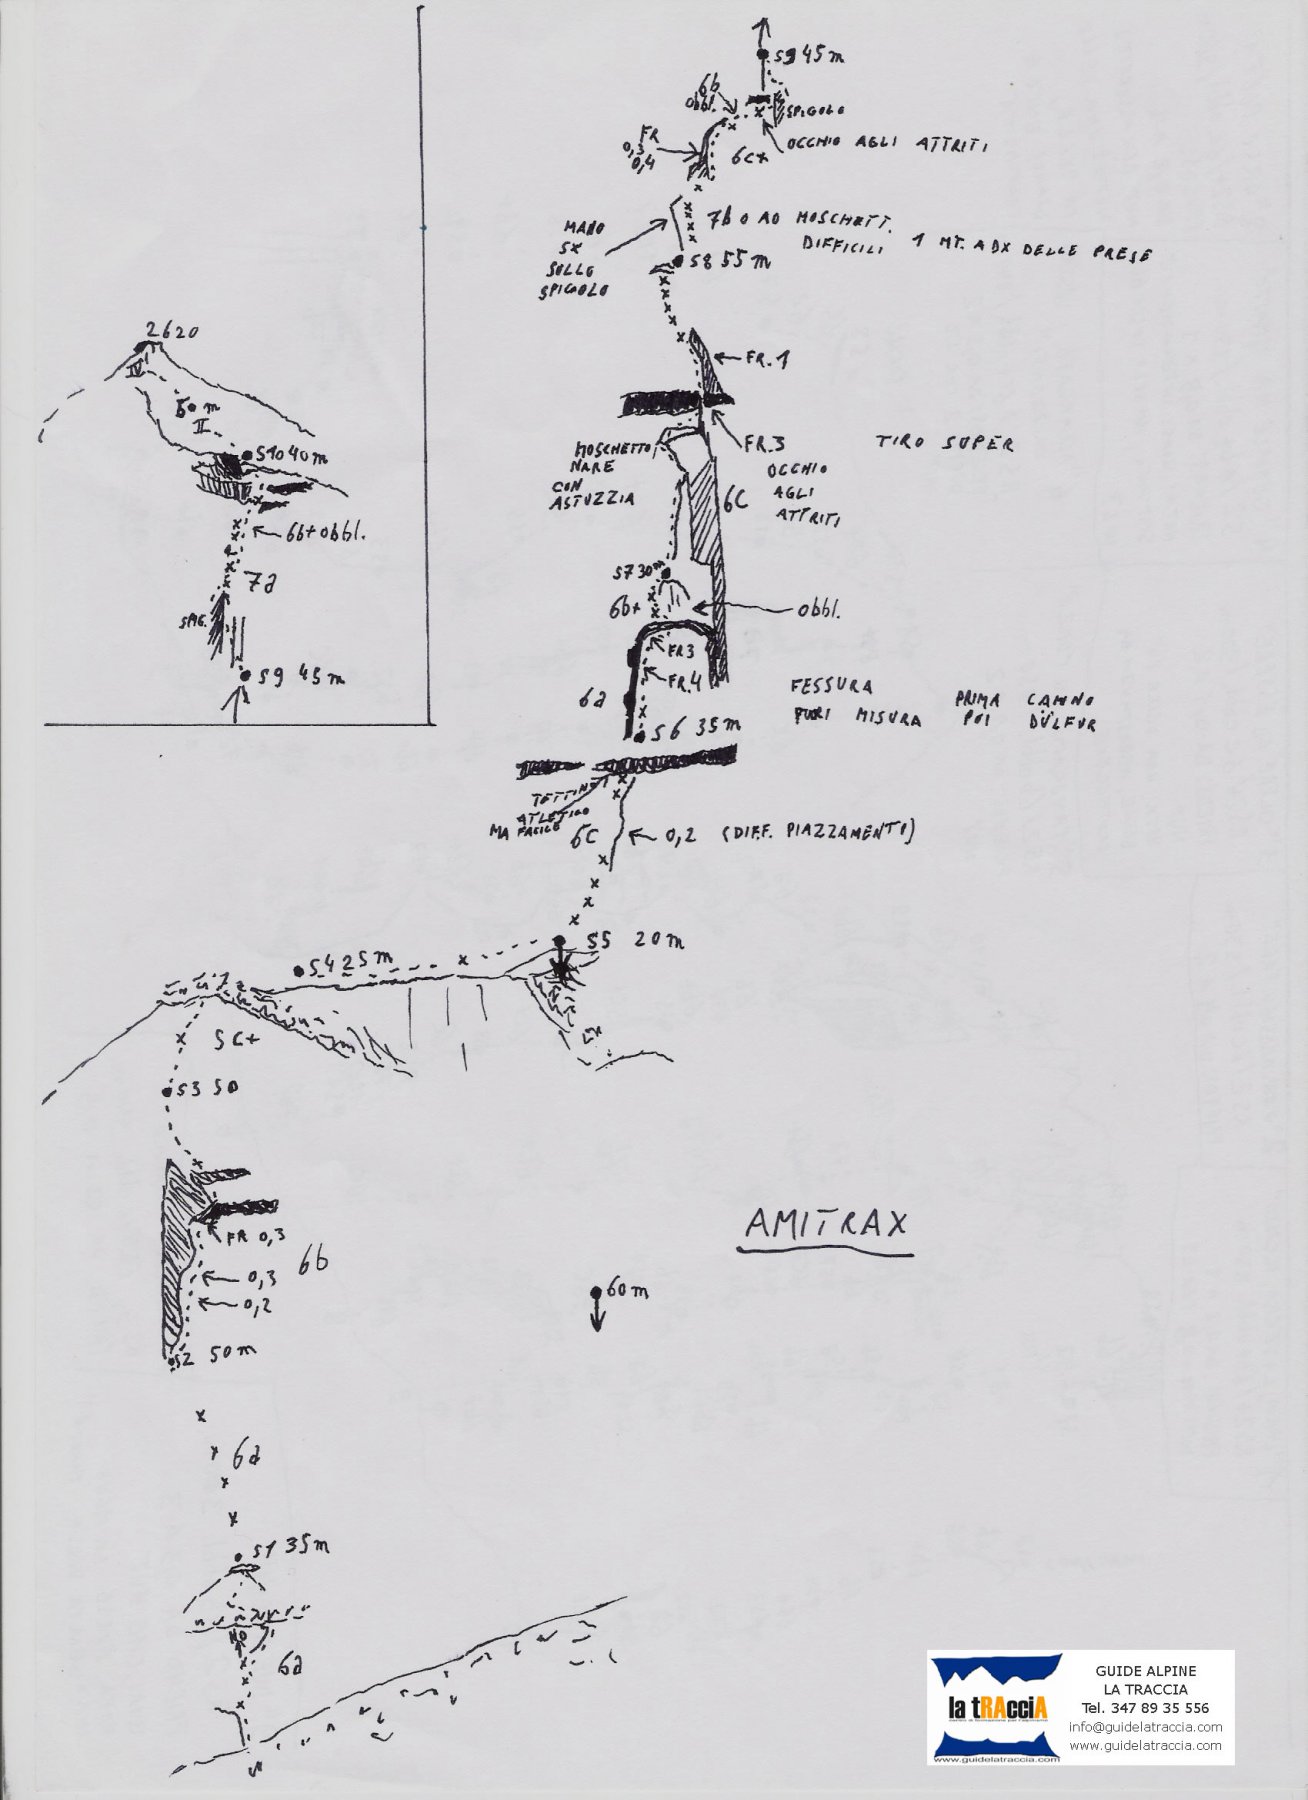 S9 45 m
6b
obbl.
SPIGOLO
OCCHIO AGLI ATTRITI
FR
0,3
0,4
6c+
7b O A0 MOSCHETT.
DIFFICILI 1 MT. A DX DELLE PRESE
MANO
SX
SULLO
SPIGOLO
S8 55 m
FR.1
FR.3
TIRO SUPER
OCCHIO
AGLI
ATTRITI
MOSCHETTO
NARE
CON
ASTUZZIA
6C
S7 30 m
6b+
obbl.
FR3
FR.4
6a
FESSURA PRIMA CAMNO
FUORI MISURA POI DÜLFUR
S6 35 m
TETTINO
ATLETICO
MA FACILE
6C
0,2 (DIFF. PIAZZAMENTI)
2620
IV
50 m
II
S10 40 m
6b+ obbl.
7a
SPIG.
S9 45 m
S5 20 m
S4 25 m
5C+
S3 50
FR 0,3
6b
0,3
0,2
S2 50 m
AMITRAX
60 m
6a
S1 35 m
NO
6a
la tRAcciA
www.guidelatraccia.com
GUIDE ALPINE
LA TRACCIA
Tel. 347 89 35 556
info@guidelatraccia.com
www.guidelatraccia.com